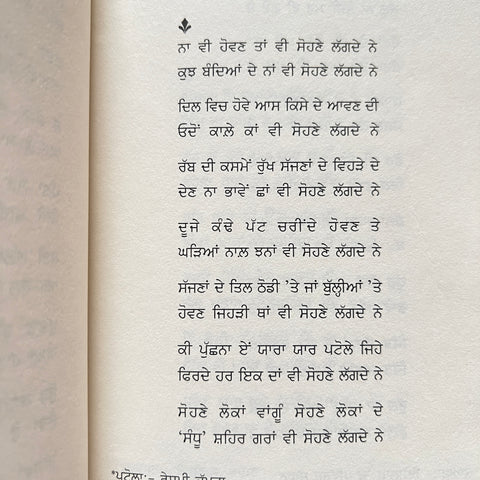 ਨਾ ਵੀ ਹੋਵਣ ਤਾਂ ਵੀ ਸੋਹਣੇ ਲੱਗਦੇ ਨੇ
ਕੁਝ ਬੰਦਿਆਂ ਦੇ ਨਾਂ ਵੀ ਸੋਹਣੇ ਲੱਗਦੇ ਨੇ
ਦਿਲ ਵਿਚ ਹੋਵੇ ਆਸ ਕਿਸੇ ਦੇ ਆਵਣ ਦੀ
ਓਦੋਂ ਕਾਲ਼ੇ ਕਾਂ ਵੀ ਸੋਹਣੇ ਲੱਗਦੇ ਨੇ
ਰੱਬ ਦੀ ਕਸਮੇਂ ਰੁੱਖ ਸੱਜਣਾਂ ਦੇ ਵਿਹੜੇ ਦੇ
ਦੇਣ ਨਾ ਭਾਵੇਂ ਛਾਂ ਵੀ ਸੋਹਣੇ ਲੱਗਦੇ ਨੇ
ਦੂਜੇ ਕੰਢੇ ਪੱਟ ਚਰੀਂਦੇ ਹੋਵਣ ਤੇ
ਘੜਿਆਂ ਨਾਲ਼ ਝਨਾਂ ਵੀ ਸੋਹਣੇ ਲੱਗਦੇ ਨੇ
ਸੱਜਣਾਂ ਦੇ ਤਿਲ ਠੋਡੀ 'ਤੇ ਜਾਂ ਬੁੱਲ੍ਹੀਆਂ 'ਤੇ
ਹੋਵਣ ਜਿਹੜੀ ਥਾਂ ਵੀ ਸੋਹਣੇ ਲੱਗਦੇ ਨੇ
ਕੀ ਪੁੱਛਨਾ ਏਂ ਯਾਰਾ ਯਾਰ ਪਟੋਲੇ ਜਿਹੇ
ਫਿਰਦੇ ਹਰ ਇਕ ਦਾਂ ਵੀ ਸੋਹਣੇ ਲੱਗਦੇ ਨੇ
ਸੋਹਣੇ ਲੋਕਾਂ ਵਾਂਗੂੰ ਸੋਹਣੇ ਲੋਕਾਂ ਦੇ
'ਸੰਧੂ' ਸ਼ਹਿਰ ਗਰਾਂ ਵੀ ਸੋਹਣੇ ਲੱਗਦੇ ਨੇ